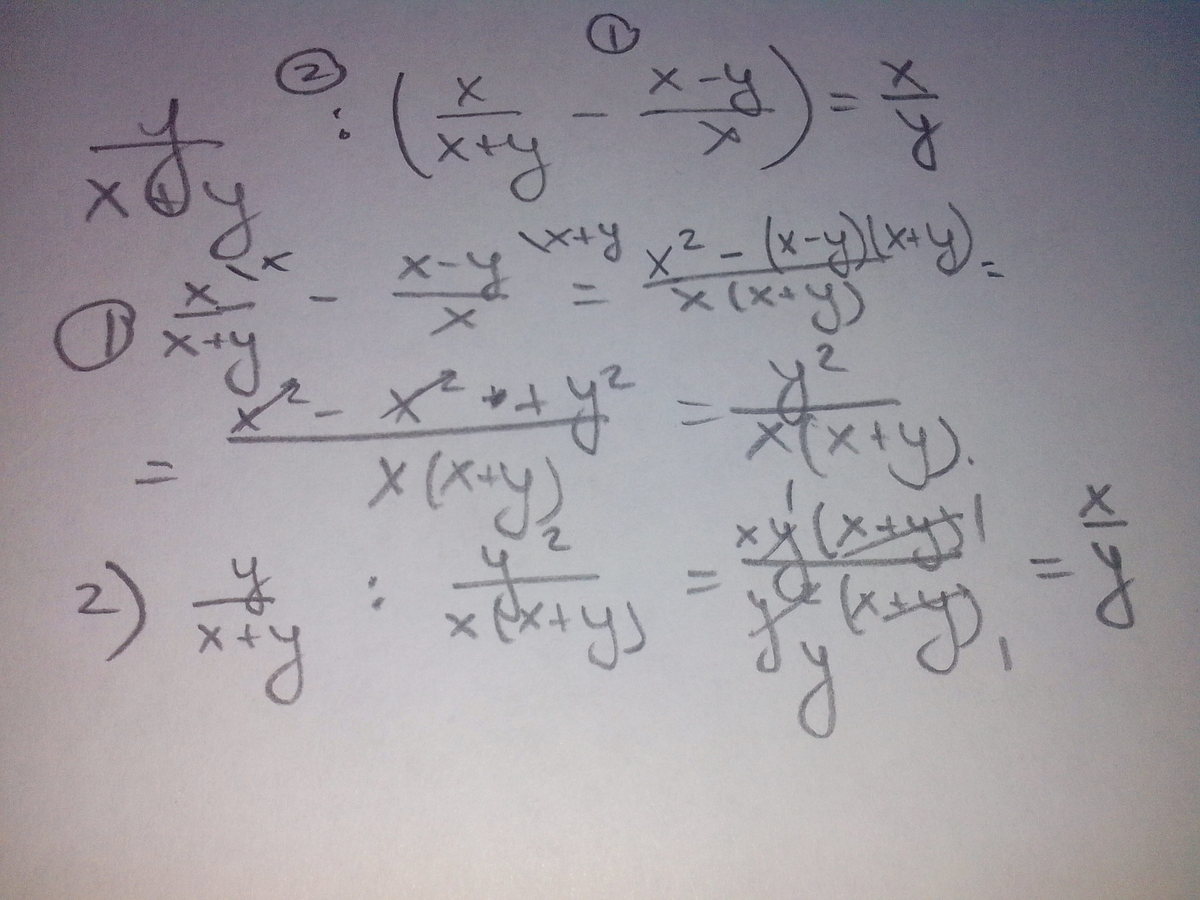 ② ①
y/(x+y) : (x/(x+y) - (x-y)/x) = x/y
① x/(x+y) \x - (x-y)/x \x+y = (x² - (x-y)(x+y))/(x(x+y)) =
= (x² - x² + y²)/(x(x+y)) = y²/(x(x+y)).
2) y/(x+y) : y²/(x(x+y)) = (xy¹(x+y)¹)/(y² y (x+y) ₁) = x/y